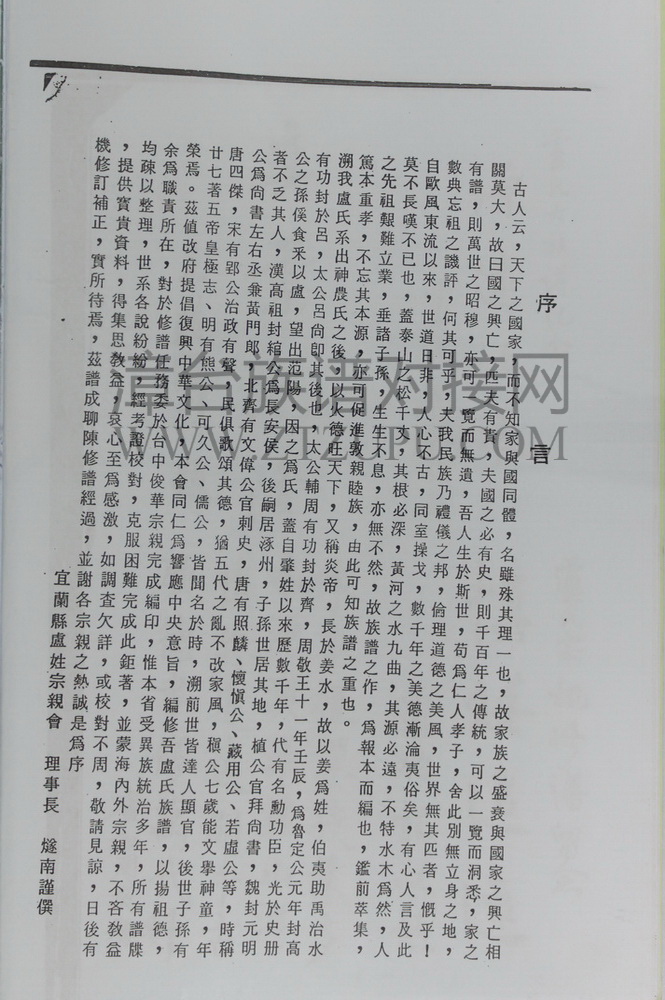 序言
古人云，天下之國家，而不知家與國同體，名雖殊其理一也，故家族之盛衰與國家之興亡相
關莫大，故曰國之興亡，匹夫有責，夫國之必有史，則千百年之傳統，可以一覽而洞悉，家之
有譜，則萬世之昭穆，亦可一覽而無遺，吾人生於斯世，苟爲仁人孝子，舍此別無立身之地，
數典忘祖之譏評，何其可乎，夫我民族乃禮儀之邦，倫理道德之美風，世界無其匹者，慨乎！
自歐風東流以來，世道日非，人心不古，同室操戈，數千年之美德漸淪夷俗矣，有心人言及此
莫不長嘆不已也，蓋泰山之松千丈，其根必深，黃河之水九曲，其源必遠，不特水木爲然，人
之先祖艱難立業，垂諸子孫，生生不息，亦無不然，故族譜之作，爲報本而編也，鑑前萃集，
篤本重孝，不忘其本源，亦可促進敦親睦族，由此可知族譜之重也。
溯我盧氏系出神農氏之後，以火德旺天下，又稱炎帝，長於姜水，故以姜爲姓，伯夷助禹治水
有功封於呂，太公呂尚卽其後也，太公輔周有功封於齊，周敬王十一年壬辰，爲魯定公元年封高
公之孫傒食釆以盧，望出范陽，因之爲氏，蓋自肇姓以來歷數千年，代有名勳功臣，光於史册
者不乏其人，漢高祖封綰公爲長安侯，後嗣居涿州，子孫世居其地，植公官拜尚書，魏封元明
公爲尚書左右丞兼黃門郎，北齊有文偉公官刺史，唐有照鄰、懷愼公、藏用公、若虛公等，時稱
唐四傑，宋有郢公治政有聲，民俱歌頌其德，猶五代之亂不改家風，稹公七歲能文擧神童，年
廿七著五帝皇極志、明有熊公、可久公、儒公，皆聞名於時，溯前世皆達人顯官，後世子孫有
榮焉。茲值政府提倡復興中華文化，本會同仁爲響應中央意旨，編修吾盧氏族譜，以揚祖德，
余爲職責所在，對於修譜任務委於台中俊華宗親完成編印，惟本省受異族統治多年，所有譜牒
均疎以整理，世系各說紛紛，經考證校對，克服困難完成此鉅著，並蒙海內外宗親，不吝教益
，提供寶貴資料，得集思教益，衷心至爲感激，如調查欠詳，或校對不周，敬請見諒，日後有
機修訂補正，實所待焉，茲譜成聊陳修譜經過，並謝各宗親之熱誠是爲序
宜蘭縣盧姓宗親會　理事長　燧南謹僎
章台族谱对接网
WWW.ZTZUPU.COM